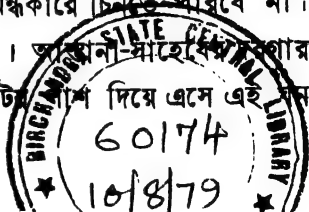 ন্ধকারে চিনতে পারবে না।
। আয়ানী-সাহেবের
দিয়ে এসে এই
BIRCHANDRA STATE CENTRAL LIBRARY
60174
10/8/79